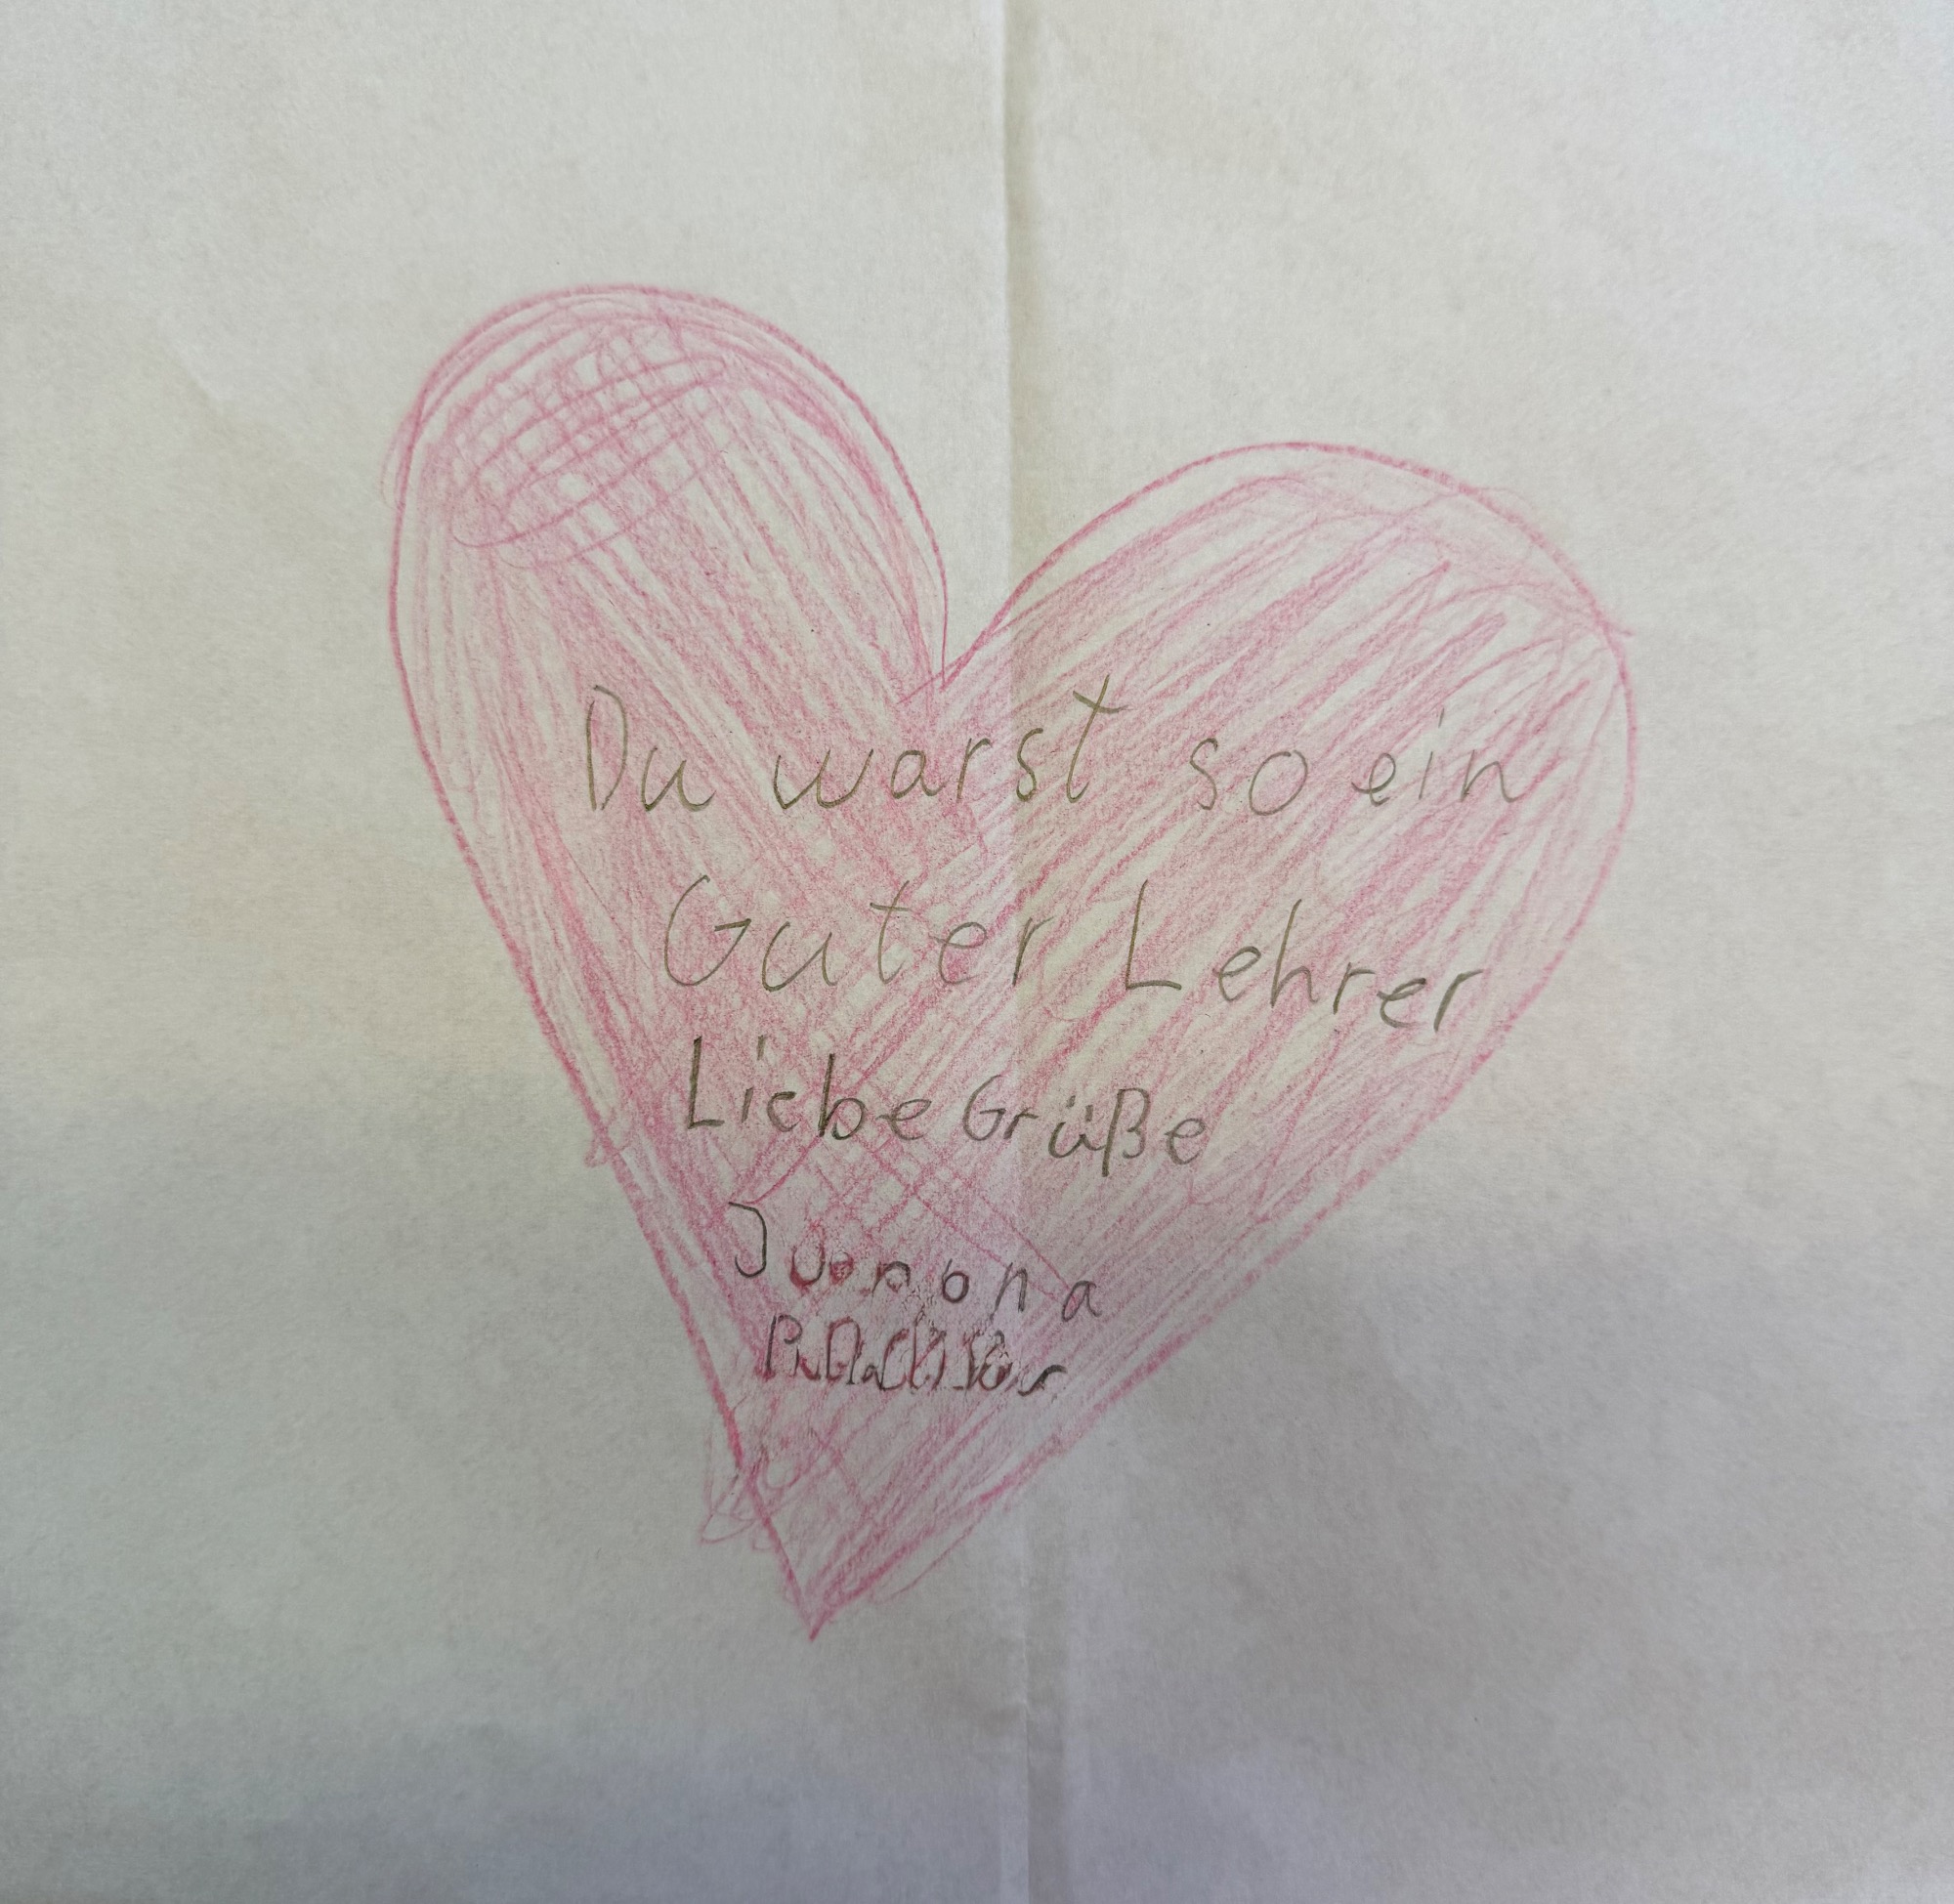 Du warst so ein
Guter Lehrer
Liebe Grüße